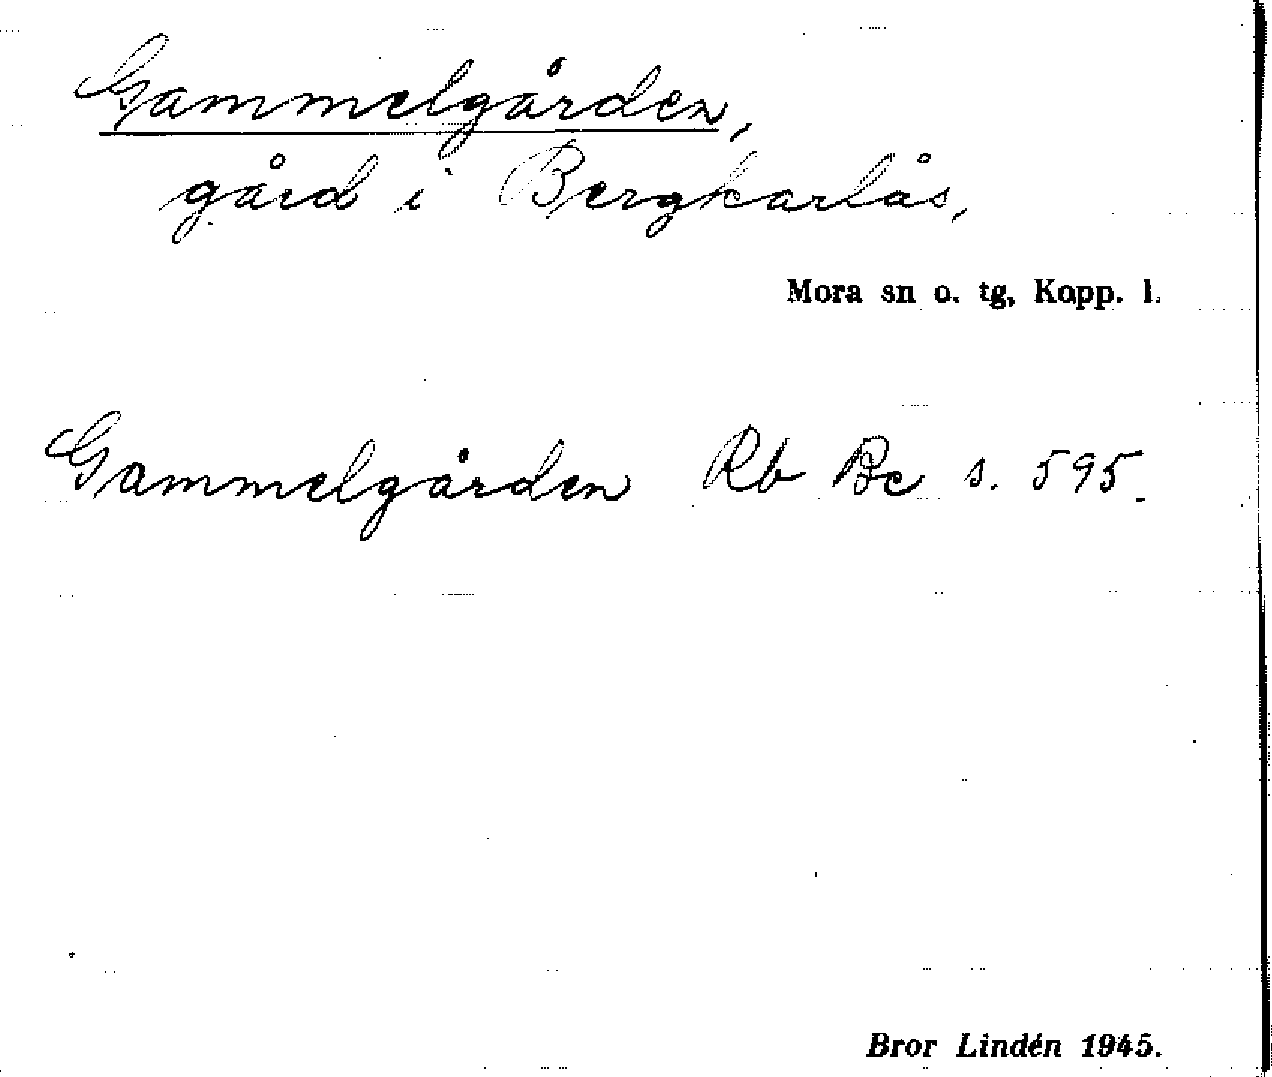 Gammelgården,
gård i Bergkarlås,
Mora sn o. tg, Kopp. l.
Gammelgården Rb Be s. 595.
Bror Lindén 1945.